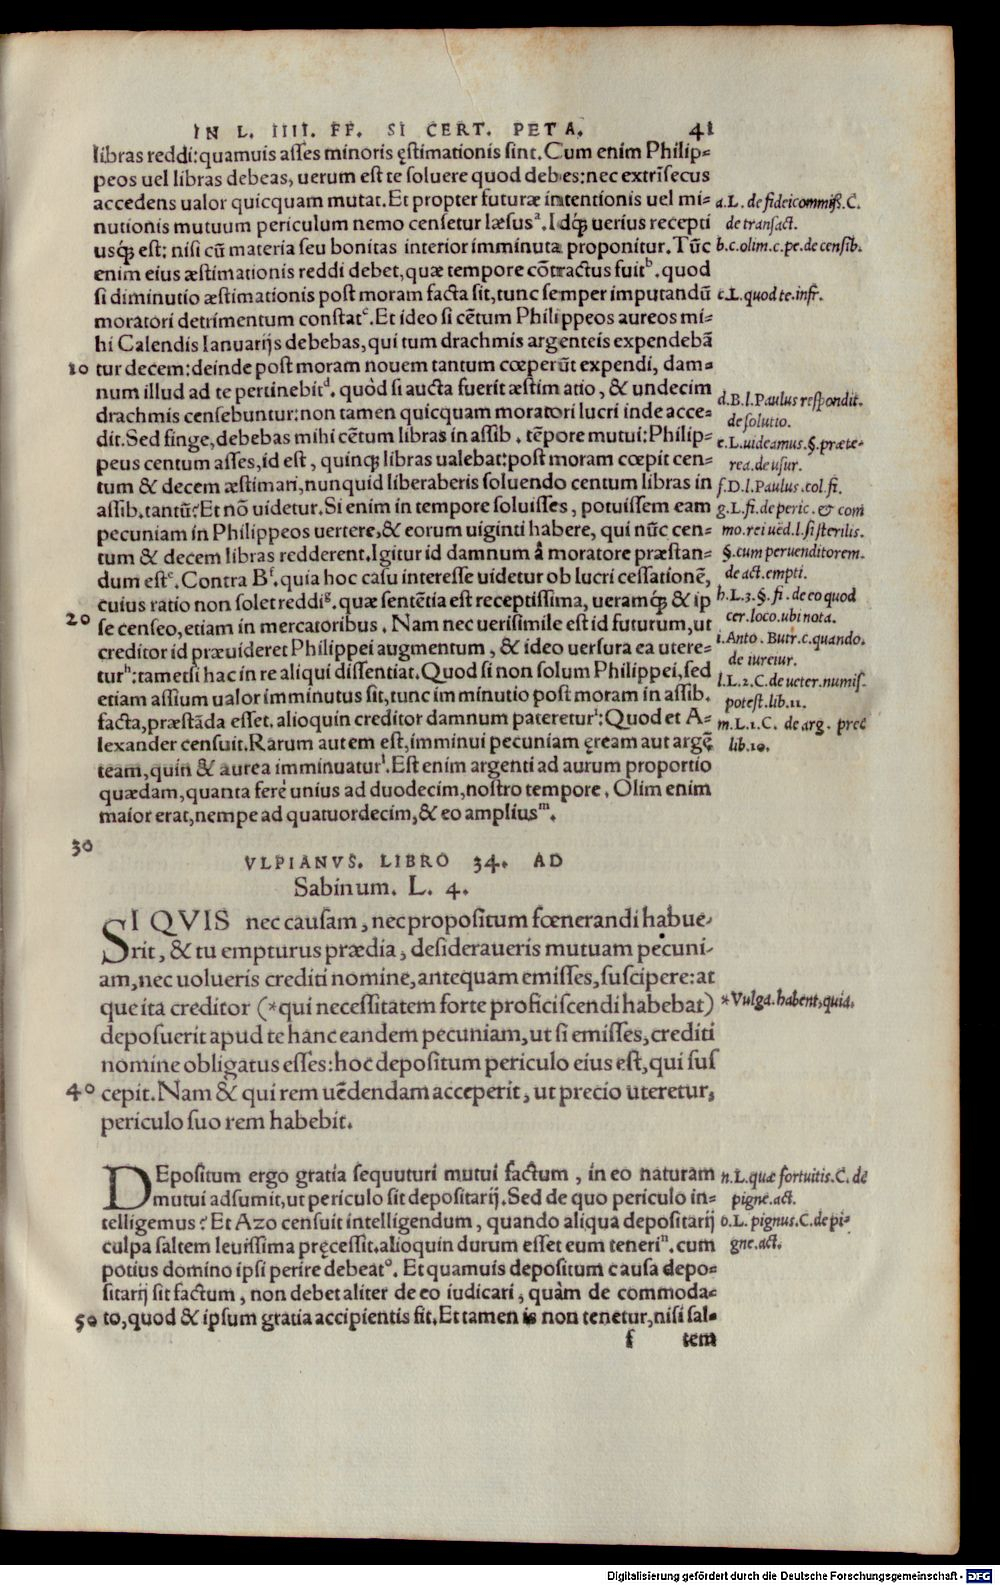 IN L. IIII. FF. SI CERT. PETA. 41
libras reddi: quamuis asses minoris ęstimationis sint. Cum enim Philip=
peos uel libras debeas, uerum est te soluere quod debes: nec extrĩsecus
accedens ualor quicquam mutat. Et propter futuræ intentionis uel mi=
nutionis mutuum periculum nemo censetur læsusᵃ. Idq́; uerius recepti
usq́; est: nisi cũ materia seu bonitas interior imminuta proponitur. Tũc
enim eius æstimationis reddi debet, quæ tempore cõtractus fuitᵇ. quod
si diminutio æstimationis post moram facta sit, tunc semper imputandũ
moratori detrimentum constatᶜ. Et ideo si cẽtum Philippeos aureos mi=
hi Calendis Ianuarijs debebas, qui tum drachmis argenteis expendebã
10 tur decem: deinde post moram nouem tantum cœperũt expendi, dam=
num illud ad te pertinebitᵈ. quòd si aucta fuerit æstimatio, & undecim
drachmis censebuntur: non tamen quicquam moratori lucri inde acce=
dit. Sed finge, debebas mihi cẽtum libras in assib. tẽpore mutui: Philip=
peus centum asses, id est, quinq; libras ualebat: post moram cœpit cen=
tum & decem æstimari, nunquid liberaberis soluendo centum libras in
assib. tantũ? Et nõ uidetur. Si enim in tempore soluisses, potuissem eam
pecuniam in Philippeos uertere, & eorum uiginti habere, qui nũc cen=
tum & decem libras redderent. Igitur id damnum â moratore præstan=
dum estᵉ. Contra B ᶠ. quia hoc casu interesse uidetur ob lucri cessationẽ,
cuius ratio non solet reddiᵍ. quæ sentẽtia est receptissima, ueramq́; & ip
20 se censeo, etiam in mercatoribus. Nam nec uerisimile est id futurum, ut
creditor id præuideret Philippei augmentum, & ideo uersura ea utere=
turʰ: tametsi hac in re aliqui dissentiat. Quod si non solum Philippei, sed
etiam assium ualor imminutus sit, tunc imminutio post moram in assib.
facta, præstãda esset. alioquin creditor damnum patereturⁱ: Quod et A=
lexander censuit. Rarum autem est, imminui pecuniam ęream aut argẽ
team, quin & aurea imminuaturˡ. Est enim argenti ad aurum proportio
quædam, quanta ferè unius ad duodecim, nostro tempore. Olim enim
maior erat, nempe ad quatuordecim, & eo ampliusᵐ.
a. L. de fideicommiß. C.
de transact.
b. c. olim. c. pe. de censib.
c. L. quod te. infr.
d. B. l. Paulus respondit.
de solutio.
e. L. uideamus. §. præte=
rea. de usur.
f. D. l. Paulus. col. fi.
g. L. fi. de peric. & com
mo. rei uẽd. l. si sterilis.
§. cum per uenditorem.
de act. empti.
h. L. 3. §. fi. de eo quod
cer. loco. ubi nota.
i. Anto. Butr. c. quando.
de iureiur.
l. L. 2. C. de ueter. numis.
potest. lib. 11.
m. L. 1. C. de arg. prec
lib. 10.
30
VLPIANVS. LIBRO 34. AD
Sabinum. L. 4.
SI QVIS nec causam, nec propositum fœnerandi habue=
rit, & tu empturus prædia, desideraueris mutuam pecuni=
am, nec uolueris crediti nomine, antequam emisses, suscipere: at
que ita creditor (*qui necessitatem forte proficiscendi habebat)
deposuerit apud te hanc eandem pecuniam, ut si emisses, crediti
nomine obligatus esses: hoc depositum periculo eius est, qui sus
40 cepit. Nam & qui rem uẽdendam acceperit, ut precio uteretur,
periculo suo rem habebit.
*Vulga. habent, quia.
DEpositum ergo gratia sequuturi mutui factum, in eo naturam
mutui adsumit, ut periculo sit depositarij. Sed de quo periculo in=
telligemus? Et Azo censuit intelligendum, quando aliqua depositarij
culpa saltem leuissima pręcessit. alioquin durum esset eum teneriⁿ. cum
potius domino ipsi perire debeatᵒ. Et quamuis depositum causa depo=
sitarij sit factum, non debet aliter de eo iudicari, quàm de commoda=
50 to, quod & ipsum gratia accipientis fit. Et tamen is non tenetur, nisi sal=
n. L. quæ fortuitis. C. de
pigne. act.
o. L. pignus. C. de pi=
gne. act.
f tem
Digitalisierung gefördert durch die Deutsche Forschungsgemeinschaft - DFG